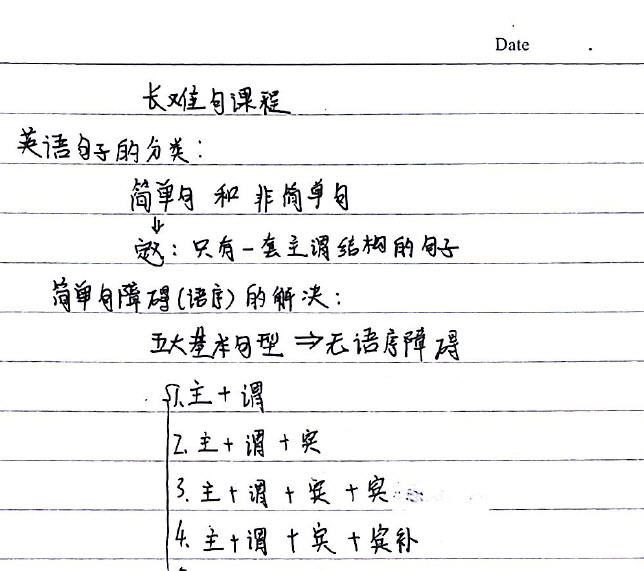 Date .
长难句课程
英语句子的分类：
简单句 和 非简单句
⇓
定义：只有一套主谓结构的句子
简单句障碍(语序)的解决：
五大基本句型 ⇒ 无语序障碍
1. 主 + 谓
2. 主 + 谓 + 宾
3. 主 + 谓 + 宾 + 宾
4. 主 + 谓 + 宾 + 宾补